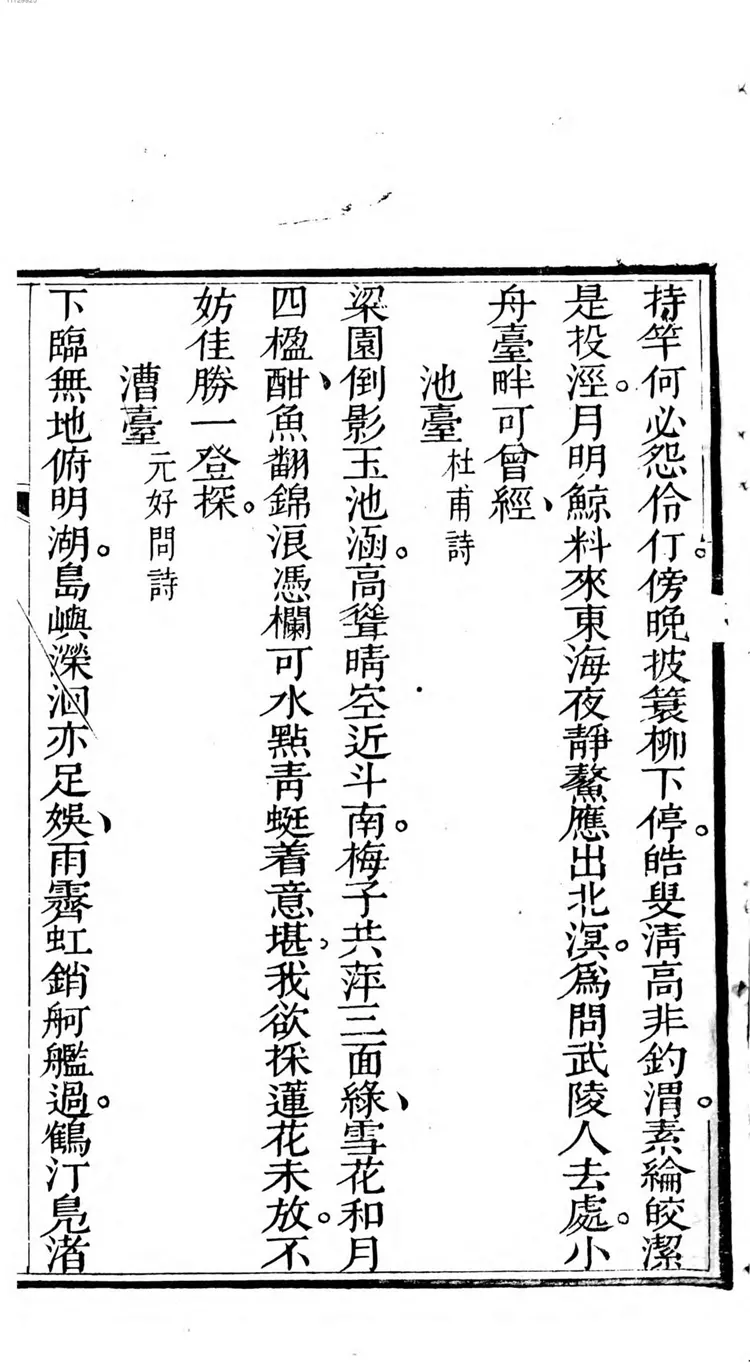 持竿何必怨伶仃。傍晚披簑柳下停。皓叟淸高非釣渭。素綸皎潔
是投涇。月明鯨料來東海夜靜鰲應出北溟。爲問武陵人去處。小
舟臺畔可曾經、
池臺 杜甫詩
梁園倒影玉池涵。高聳晴空近斗南。梅子共萍三面綠、雪花和月
四楹酣、魚翻錦浪憑欄可水點靑蜓着意堪。我欲採蓮花未放。不
妨佳勝一登探。
漕臺 元好問詩
下臨無地俯明湖。島嶼濚洄亦足娛、雨霽虹銷舸艦過。鶴汀鳧渚